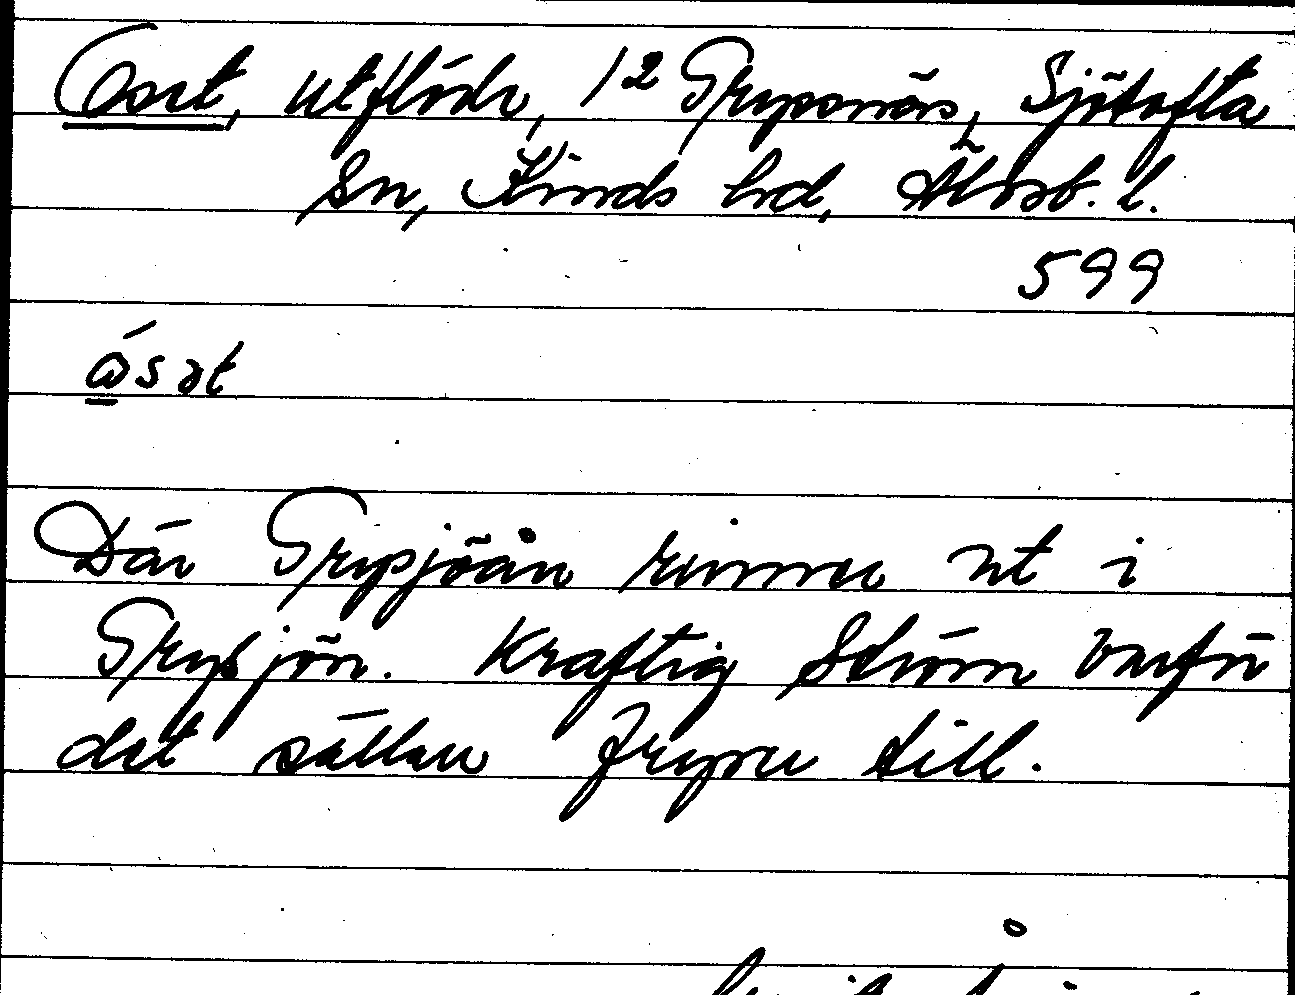 Oset, utflöde, 12 Grypsnäs, Sjötofta
sn, Kinds hd, Älvsb. l.
599
ósət
Där Grypsjöån rinner ut i
Grypsjön. Kraftig ström varför
det sällan fryser till.